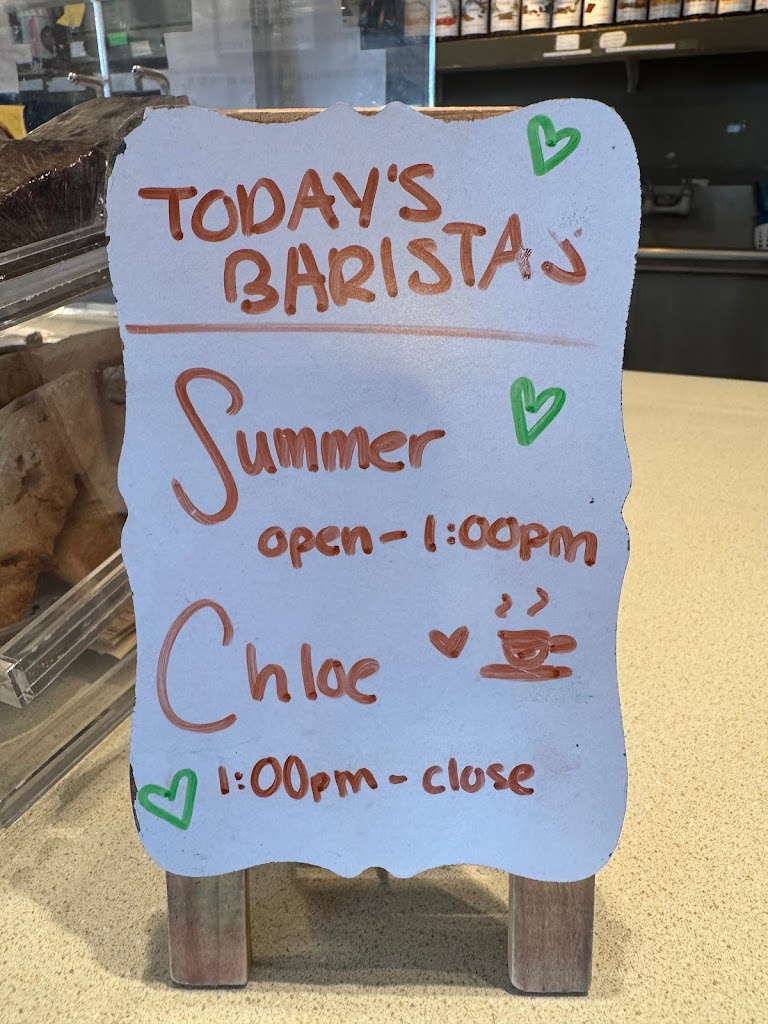 TODAY'S
BARISTAS
Summer
open - 1:00pm
Chloe
1:00pm - close